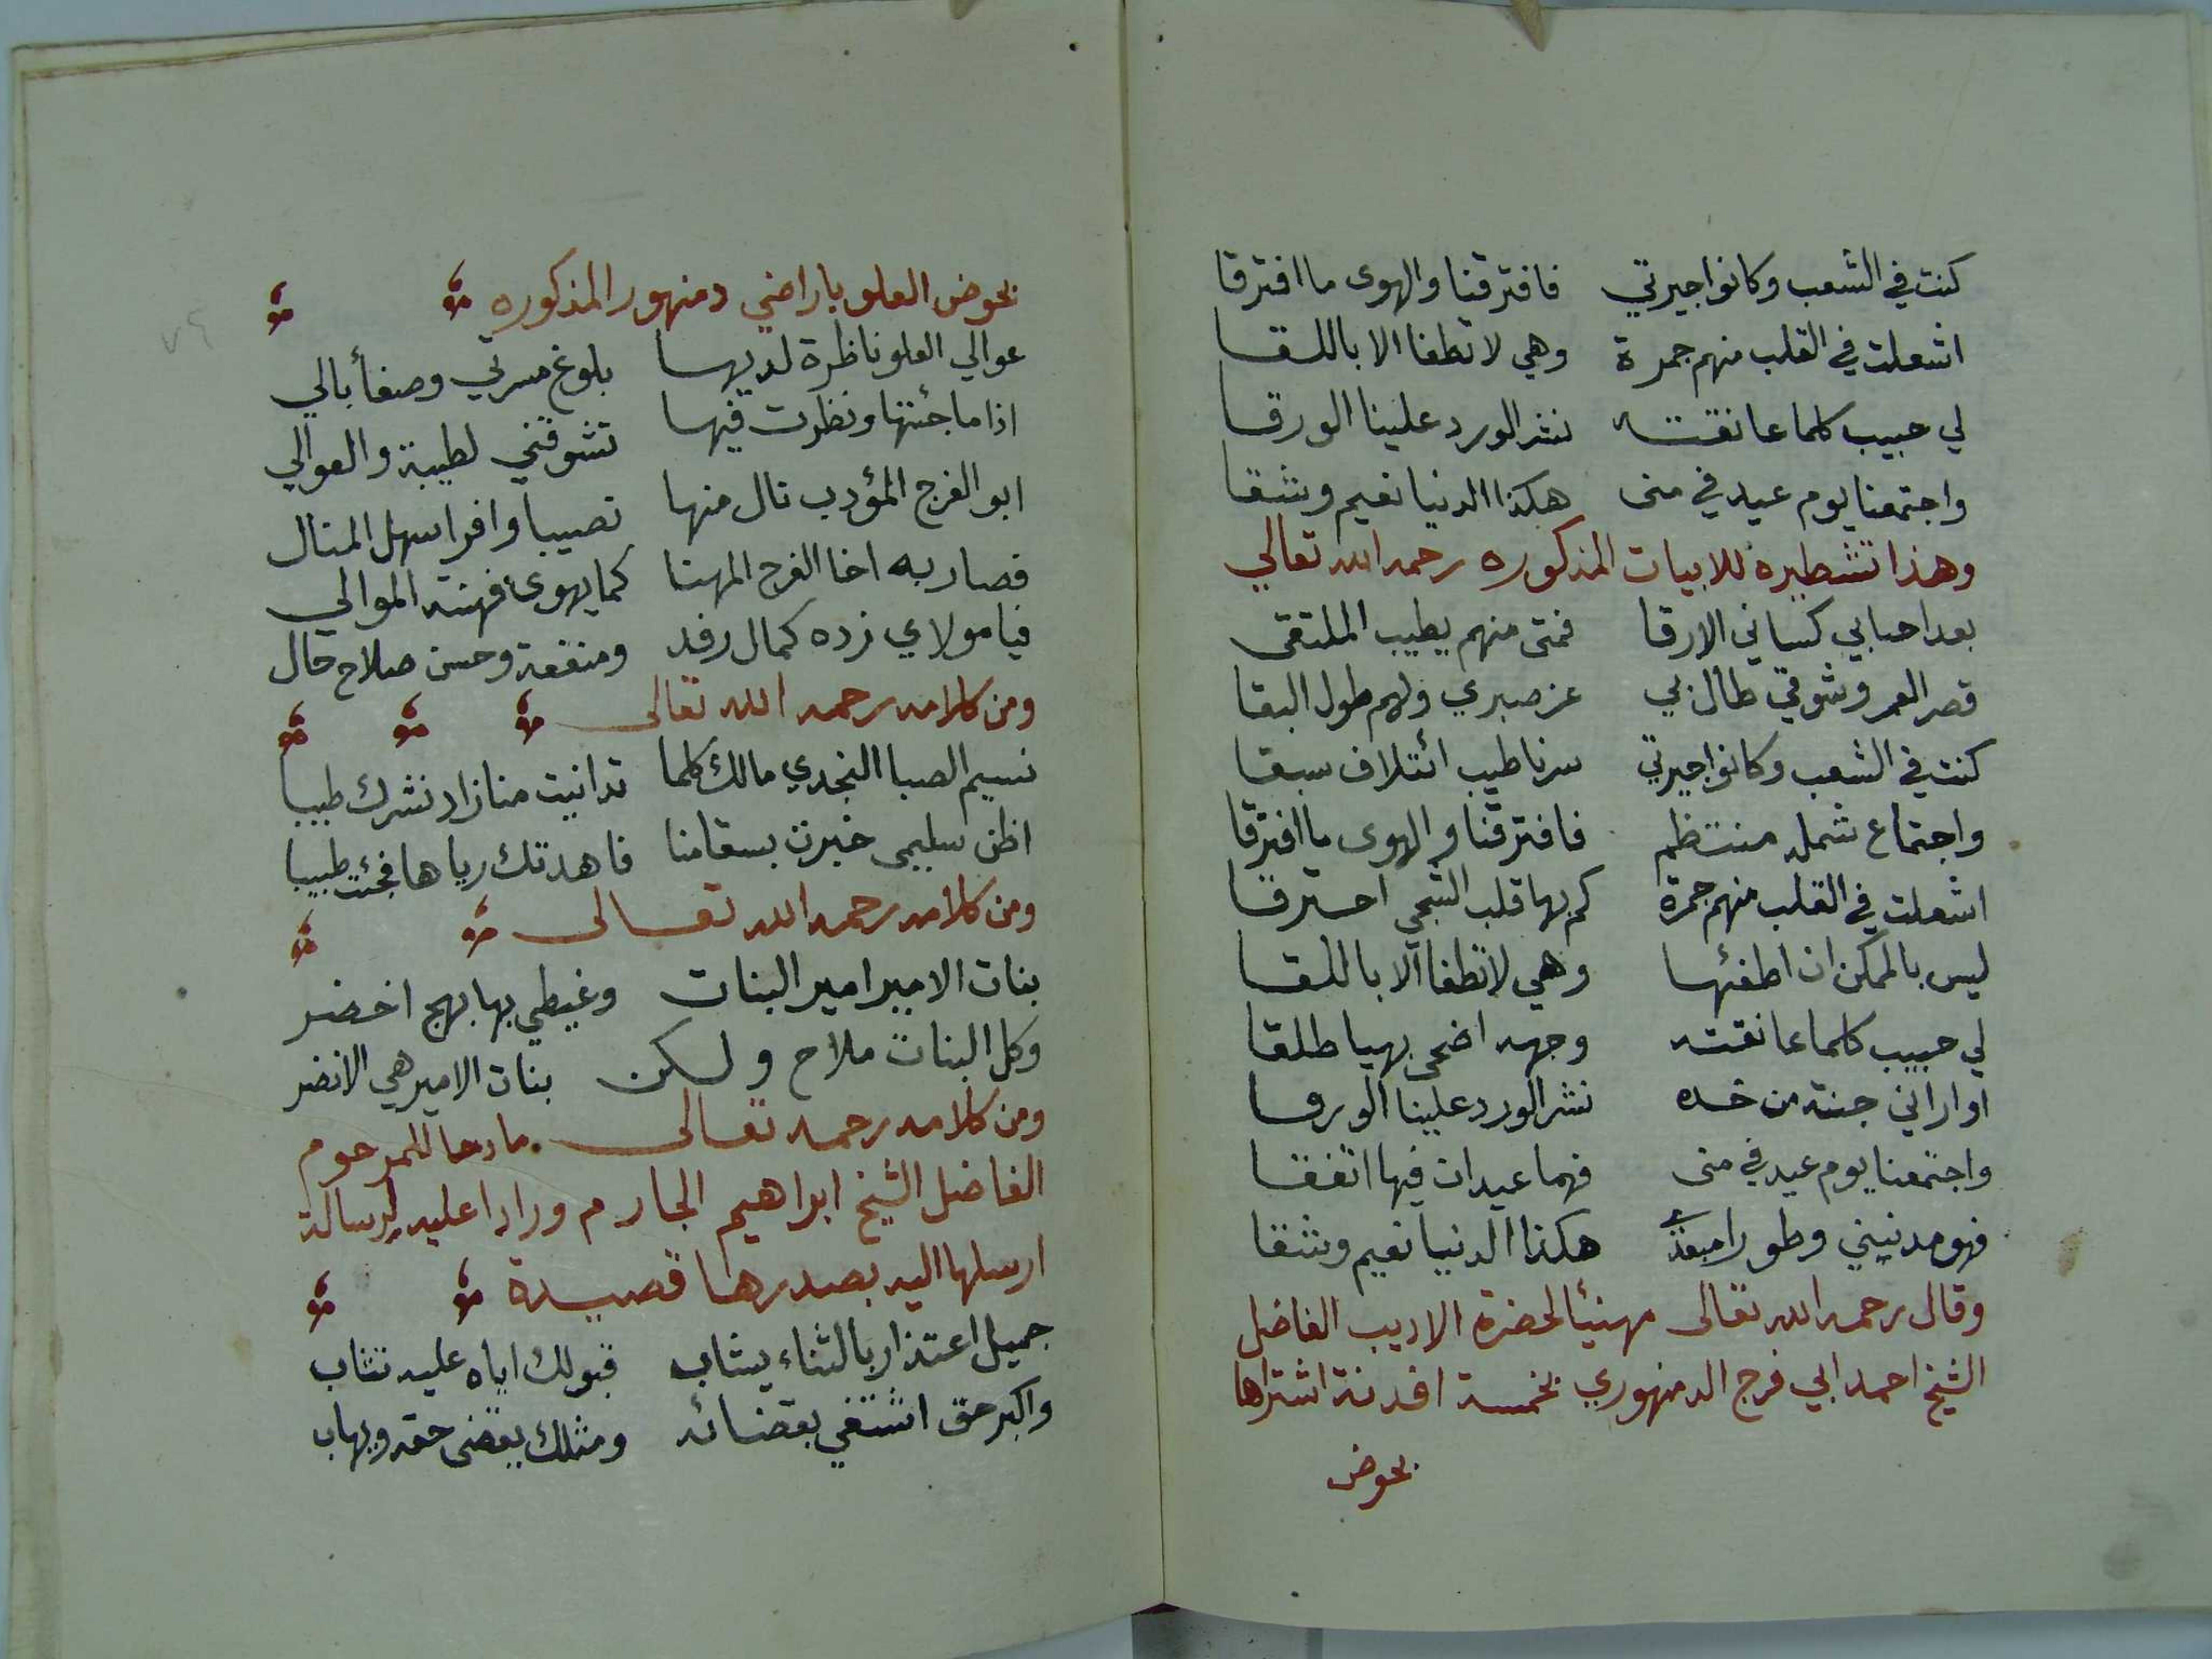 كنت في الشعب وكانوا جيرتي فافترقنا والهوى ما افترقا
اشعلت في القلب منهم جمرة وهي لا تطفا الا باللقا
لي حبيب كلما عانقته نثر الورد علينا الورقا
واجتمعنا يوم عيد في منى هكذا الدنيا نعيم وشقا
وهذا تشطيره للابيات المذكوره رحمه الله تعالي
بعد احبابي كساني الارقا فمتى منهم يطيب الملتقى
قصر العمر وشوقي طال بي عز صبري ولهم طول البقا
كنت في الشعب وكانوا جيرتي سرنا طيب ائتلاف سبقا
واجتماع شمله منتظم فافترقنا والهوى ما افترقا
اشعلت في القلب منهم جمرة كم بها قلب الشجي احترقا
ليس بالممكن ان اطفئها وهي لا تطفا الا باللقا
لي حبيب كلما عانقته وجهه اضحى بهيا طلقا
اواراني جنة من خده نثر الورد علينا الورقا
واجتمعنا يوم عيد في منى فهما عيدان فيها اتفقا
فهو مدنيني وطورا مبعدي هكذا الدنيا نعيم وشقا
وقال رحمه الله تعالى مهنئا لحضرة الاديب الفاضل
الشيخ احمد ابي فرج الدمنهوري بخمسة افدنة اشتراها
بحوض
بحوض العلو باراضي دمنهور المذكوره
عوالي العلو ناظرة لديها بلوغ مسرتي وصفأ بالي
اذا ما جئتها ونظرت فيها تشوقني لطيبة والعوالي
ابو الفرج المؤدب نال منها نصيبا وافرا سهل المنال
فصار به اخا الفرح المهنا كما يهوى فهنته الموالي
فيا مولاي زده كمال رفد ومنفعة وحسن صلاح حال
ومن كلامه رحمه الله تعالى
نسيم الصبا النجدي مالك كلما تدانيت منا زاد نشرك طيبا
اظن سليمى خبرت بسقامنا فاهدتك رياها فجئت طبيبا
ومن كلامه رحمه الله تعالى
بنات الامير امير البنات وغيطي بها بهج اخضر
وكل البنات ملاح ولكن بنات الامير هي الانضر
ومن كلامه رحمه تعالى مادحا للمرحوم
الفاضل الشيخ ابراهيم الجارم ورادا عليه لرسالة
ارسلها اليه بصدرها قصيدة
جميل اعتذار بالثناء يشاب قبولك اياه عليه تثاب
واكبر حق اشتفي بقضائه ومثلك يقضى حقه ويهاب